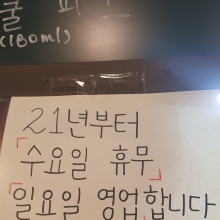 쿨 피스
(180ml)
21년부터
「수요일 휴무」
「일요일 영업」합니다